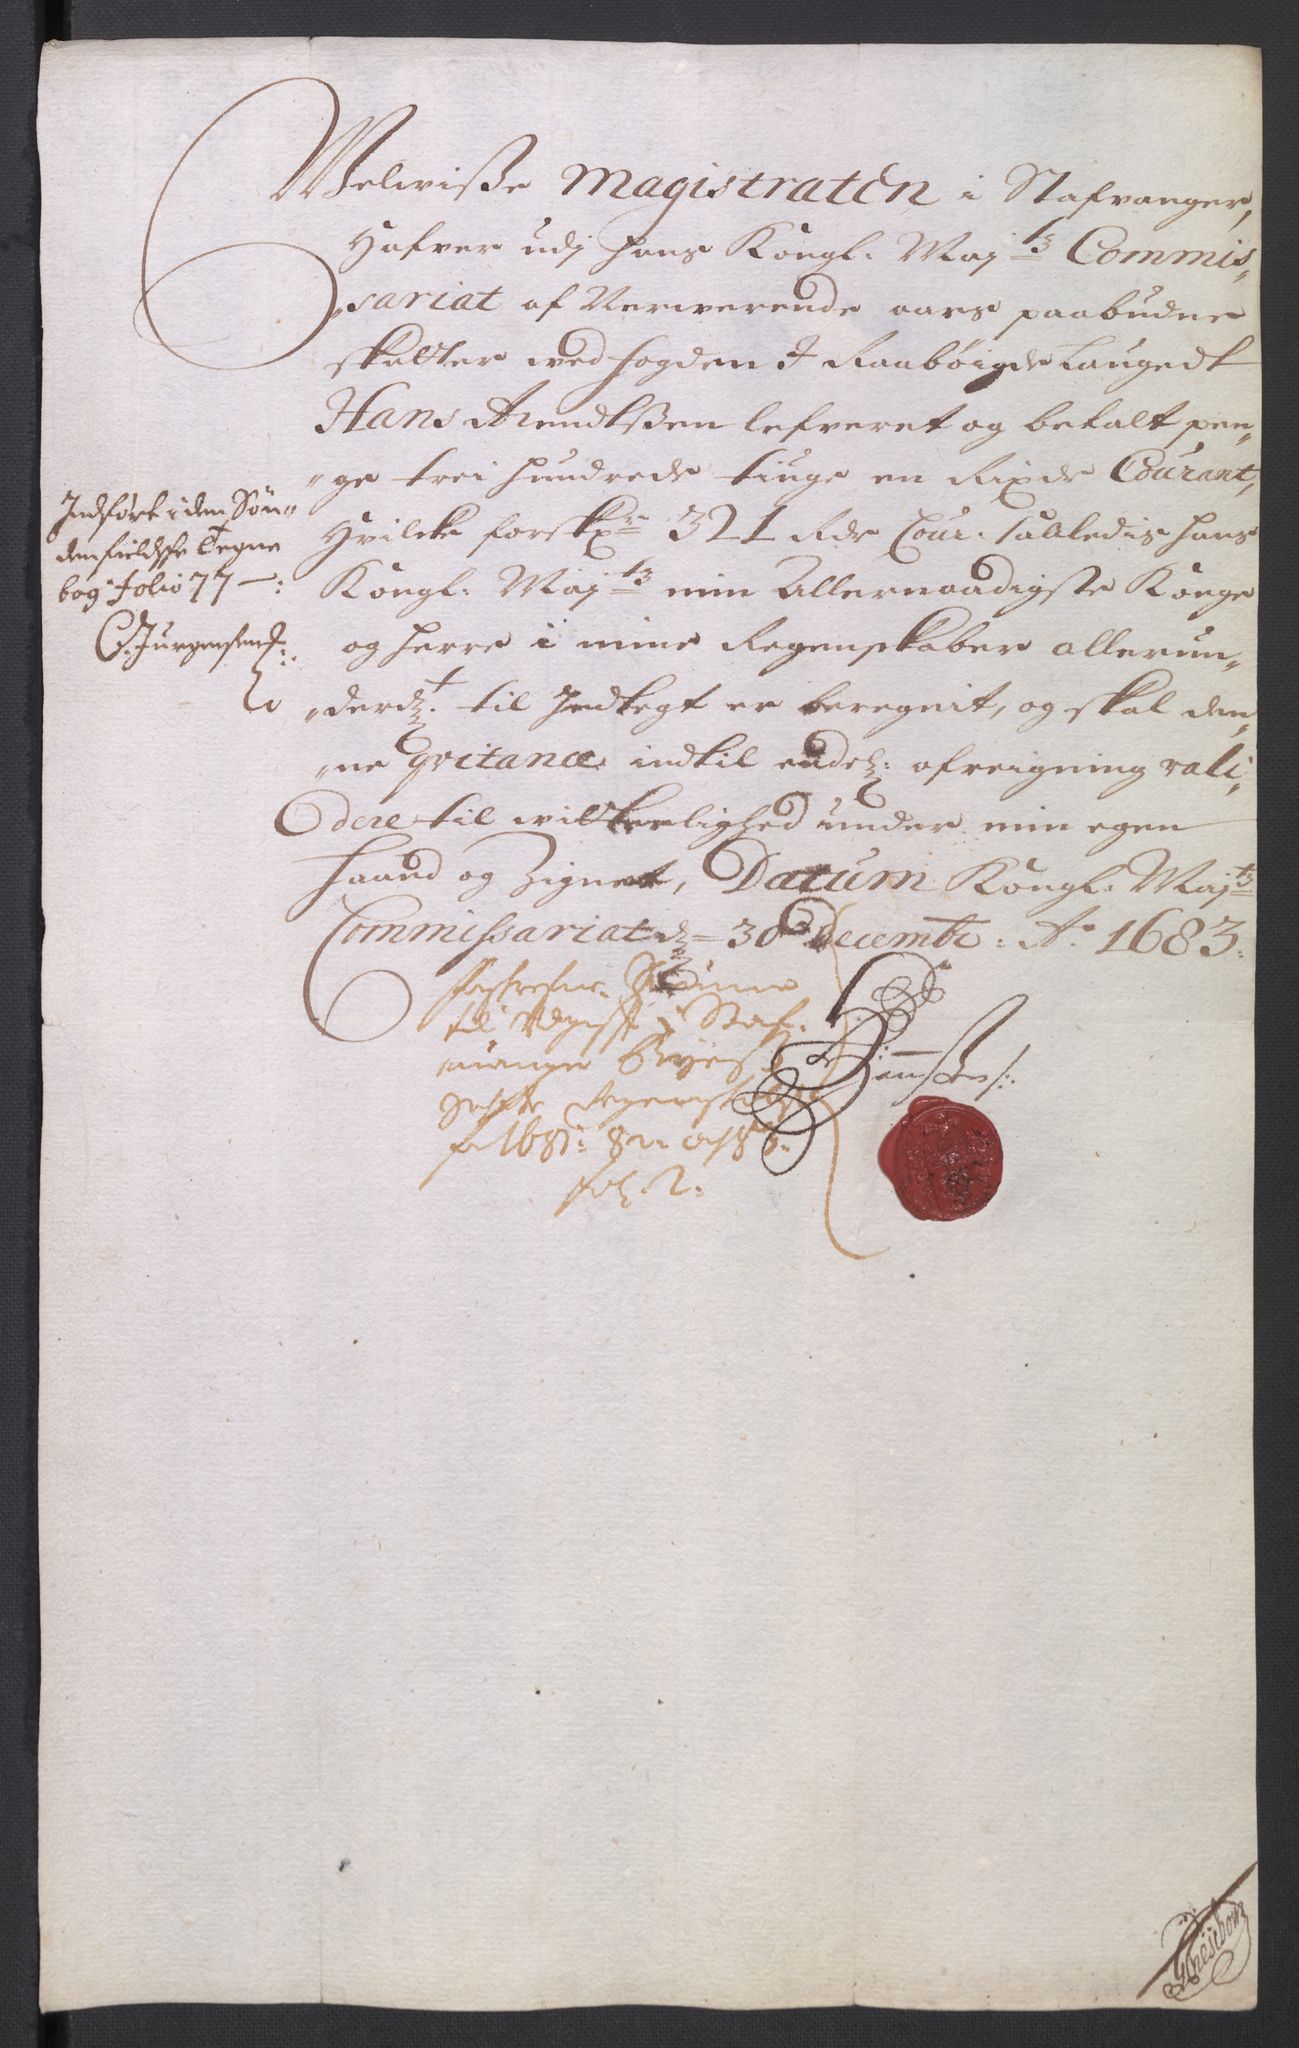 Welwisse Magistraten i Stafvanger,
Hafver udj Hans Kongl. Maj.ts Commis„
„sariat af Nerwerende aars paabudne
skatter wed fogden J Raabøigde Laugedt
Hans Arendtssen lefveret og betalt pen„
„ge trei hundrede tiuge en Rixdr Courant,
Hvilcke forskr.ne 321 Rdr Cour. saaledis Hans
Kongl. Maj.ts min Allernaadigste Konge
og Herre i mine Regenskaber allerun„
„derd.t til Indtegt er beregnit, og skal den„
„ne Qvitance indtil endel: afreigning vali„
dere til witterlighed under min egen
Haand og Zignet, Datum Kongl. Maj.ts
Commissariat d. 30 Decembr: A.o 1683.
Indført i den Søn„
denfieldske Tegne
bog Folio 77 —:
C. Jurgensen
til i Staf„
wanger Byes
fol. 2.